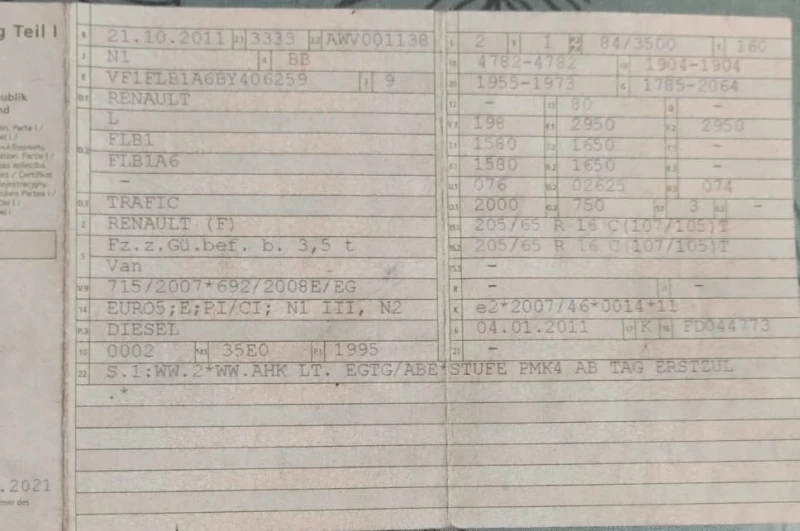 g Teil I
ublik
nd
.2021
B 21.10.2011 2.1 3333 2.2 AWV001138
J N1 4 BB
E VF1FLB1A6BY406259 3 9
D.1 RENAULT
L
D.2 FLB1
FLB1A6
-
D.3 TRAFIC
2 RENAULT (F)
5 Fz.z.Gü.bef. b. 3,5 t
Van
V.9 715/2007*692/2008E/EG
14 EURO5;E;PI/CI; N1 III, N2
P.3 DIESEL
10 0002 14.1 35E0 P.1 1995
22 S.1:WW.2*WW.AHK LT. EGTG/ABE*STUFE PMK4 AB TAG ERSTZUL
.*
L 2 9 1 P.2 P.4 84/3500 T 160
18 4782-4782 19 1904-1904
20 1955-1973 G 1785-2064
12 - 13 80 Q -
V.7 198 F.1 2950 F.2 2950
7.1 1580 7.2 1650 7.3 -
8.1 1580 8.2 1650 8.3 -
U.1 076 U.2 02625 U.3 074
O.1 2000 O.2 750 S.1 3 S.2 -
15.1 205/65 R 16 C(107/105)T
15.2 205/65 R 16 C(107/105)T
15.3 -
R - 11 -
K e2*2007/46*0014*11
6 04.01.2011 17 K 16 FD044773
21 -